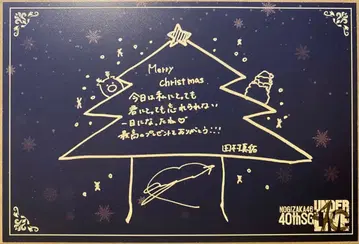 Merry
christmas
今日は私にとっても
君にとっても忘れられない
一日になったね♡
最高のプレゼントをありがとう!!!
田村真佑
NOGIZAKA46
40thSG
UNDER
LIVE